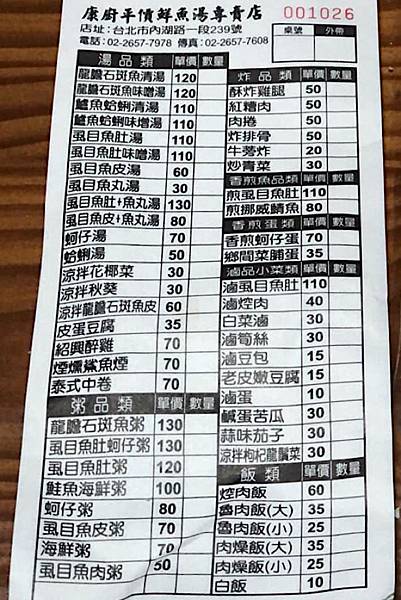 康廚平價鮮魚湯專賣店
001026
店址:台北市內湖路一段239號
電話:02-2657-7978 傳真:02-2657-7608
桌號 外帶
湯品類 單價 數量
龍膽石斑魚清湯 120
龍膽石斑魚味噌湯 120
鱸魚蛤蜊清湯 110
鱸魚蛤蜊味噌湯 110
虱目魚肚湯 110
虱目魚肚味噌湯 110
虱目魚皮湯 60
虱目魚丸湯 30
虱目魚肚+魚丸湯 130
虱目魚皮+魚丸湯 80
蚵仔湯 70
蛤蜊湯 50
涼拌花椰菜 30
涼拌秋葵 30
涼拌龍膽石斑魚皮 60
皮蛋豆腐 35
紹興醉雞 70
煙燻鯊魚煙 70
泰式中卷 70
粥品類 單價 數量
龍膽石斑魚粥 130
虱目魚肚蚵仔粥 130
虱目魚肚粥 120
鮭魚海鮮粥 100
蚵仔粥 80
虱目魚皮粥 70
海鮮粥 70
虱目魚肉粥 50
炸品類 單價 數量
酥炸雞腿 50
紅糟肉 50
肉捲 50
炸排骨 50
牛蒡炸 20
炒青菜 30
香煎魚品類 單價 數量
煎虱目魚肚 110
煎挪威鯖魚 80
香煎蛋類 單價 數量
香煎蚵仔蛋 70
鄉間菜脯蛋 35
滷品小菜類 單價 數量
滷虱目魚肚 110
滷焢肉 40
白菜滷 30
滷筍絲 30
滷豆包 15
老皮嫩豆腐 15
滷蛋 10
鹹蛋苦瓜 30
蒜味茄子 30
涼拌枸杞龍鬚菜 30
飯類 單價 數量
焢肉飯 60
魯肉飯(大) 35
魯肉飯(小) 25
肉燥飯(大) 35
肉燥飯(小) 25
白飯 10